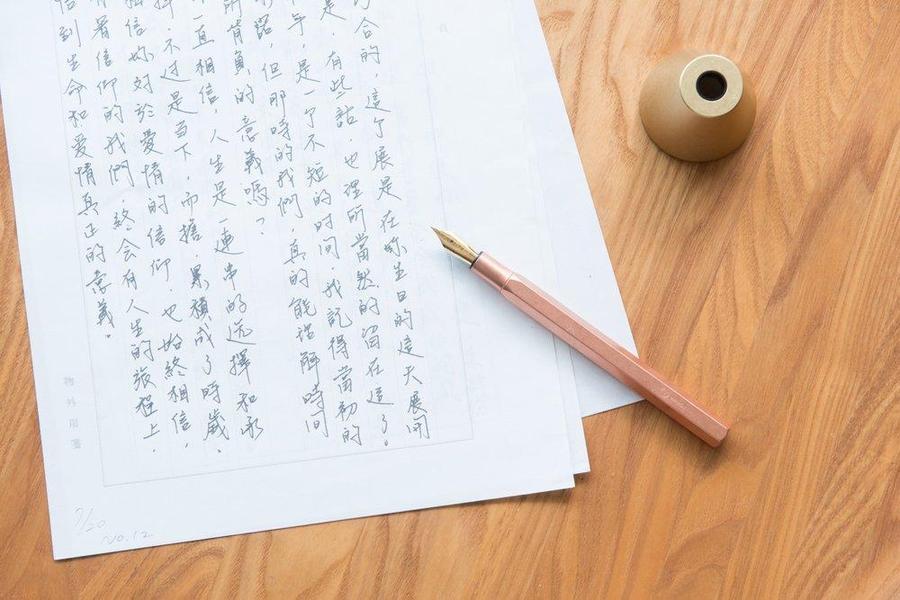 合的，這个展是在妳生日的這天展開
是，有些話，也理所當然的留在這了。
年，是一个不短的时间，我記得當初的
，但那時的我們，真的能理解時间
所背負的意義嗎？
一直相信，人生是一連串的选擇和承
擇，不過是当下，而擔，累積成了時歲。
相信妳对於愛情的信仰，也始終相信，
有著信仰的我們，終会有人生的旅程上，
到生命和爱情真正的意義。
物外用箋
7/20
No.12